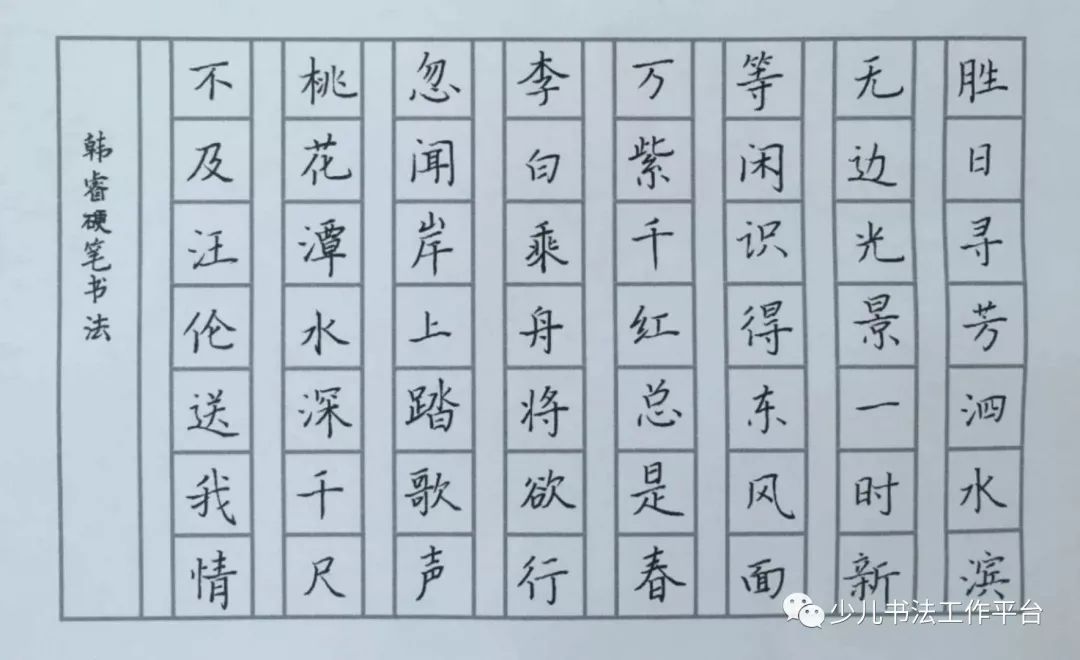 胜日寻芳泗水滨
无边光景一时新
等闲识得东风面
万紫千红总是春
李白乘舟将欲行
忽闻岸上踏歌声
桃花潭水深千尺
不及汪伦送我情
韩睿硬笔书法
少儿书法工作平台